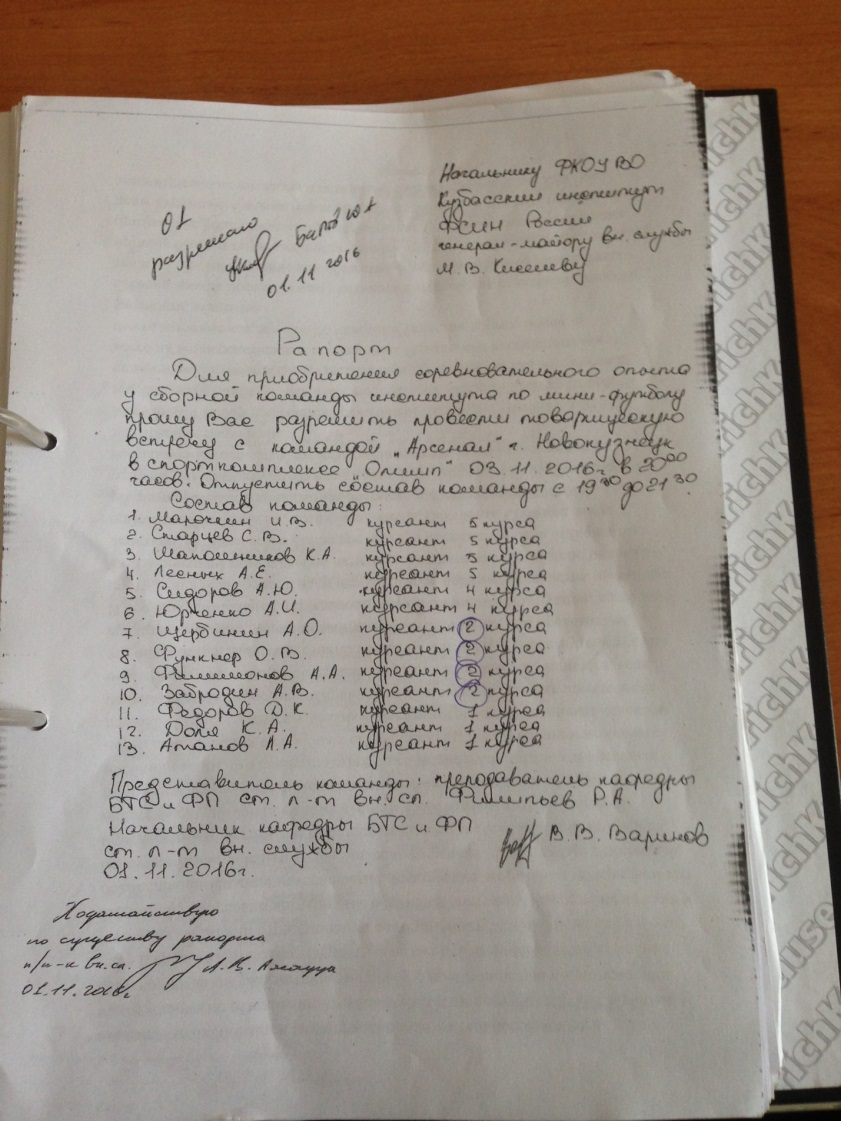 Начальнику ФКОУ ВО
Кузбасский институт
ФСИН России
генерал-майору вн. службы
М. В. Киселеву
01
разрешаю
01.11 2016
Рапорт
Для приобретения соревновательного опыта
у сборной команды института по мини-футболу
прошу Вас разрешить провести товарищескую
встречу с командой „Арсенал" г. Новокузнецк
в спорткомплексе „Олимп" 03.11.2016г. в 20⁰⁰
часов. Отпустить состав команды с 19³⁰ до 21³⁰
Состав команды:
1. И.В. курсант 5 курса
2. Старцев С.В. курсант 5 курса
3. Шапошников К.А. курсант 5 курса
4. Лесных А.Е. курсант 5 курса
5. Сидоров А.Ю. курсант 4 курса
6. Юрченко А.И. курсант 4 курса
7. Щербинин А.О. курсант 2 курса
8. Функнер О.В. курсант 2 курса
9. Филимонов А.А. курсант 2 курса
10. Забродин А.В. курсант 2 курса
11. Федоров Д.К. курсант 1 курса
12. Доля К.А. курсант 1 курса
13. Атанов А.А. курсант 1 курса
Представитель команды: преподаватель кафедры
БТС и ФП ст. л-т вн. сл. Филипьев Р.А.
Начальник кафедры БТС и ФП
ст. л-т вн. службы В.В. Варинов
01.11.2016г.
Ходатайствую
по существу рапорта
п/п-к вн.сл. А.В.
01.11.2016г
richK
richK
richK
richK
richK
richK